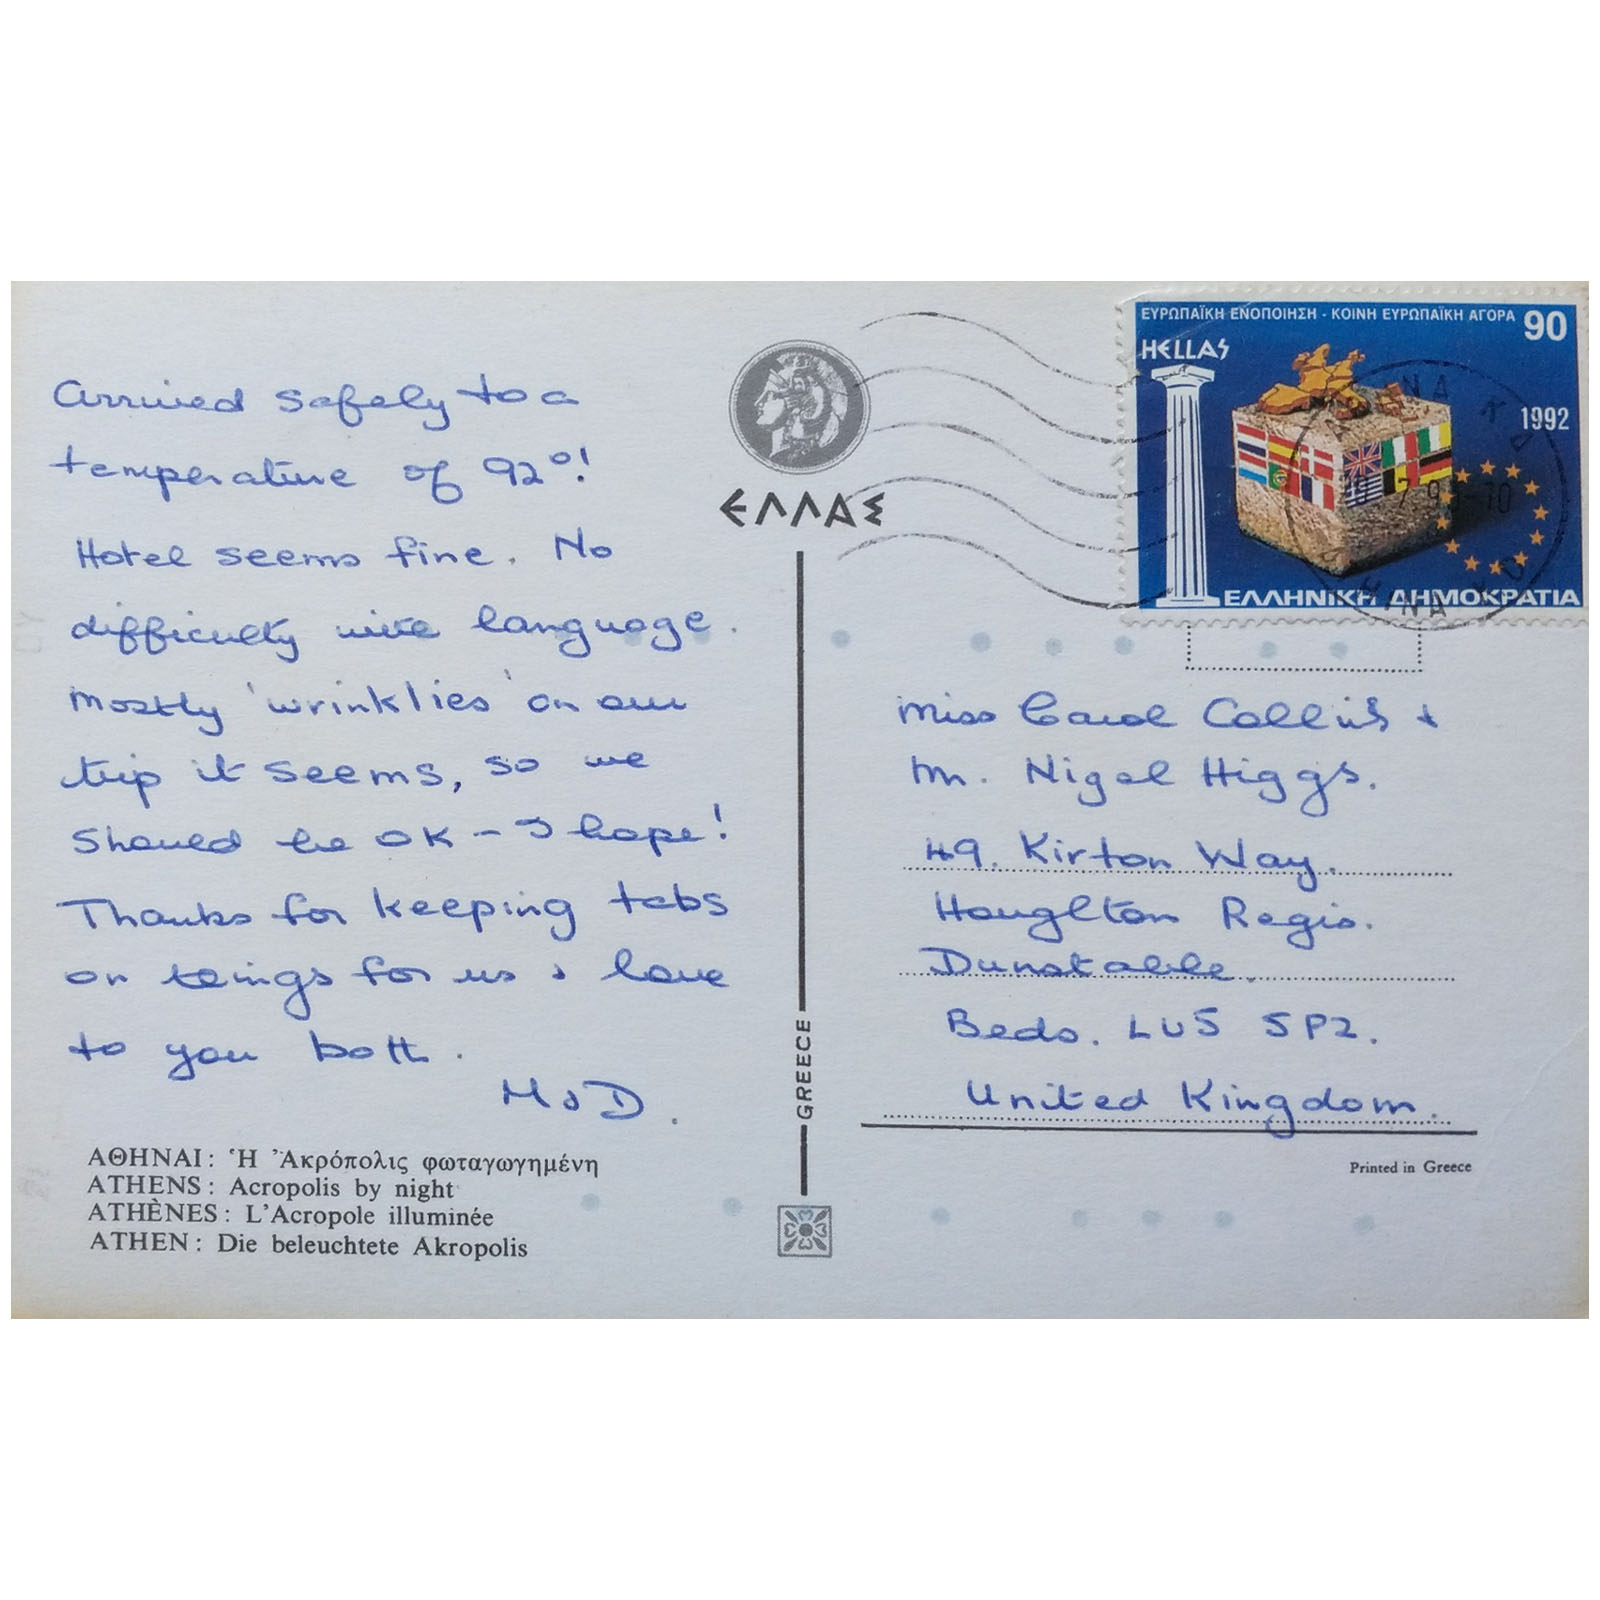 Arrived safely to a
temperature of 92°!
Hotel seems fine. No
difficulty with language.
Mostly 'wrinklies' on our
trip it seems, so we
should be OK – I hope!
Thanks for keeping tabs
on things for us & love
to you both.
M & D.
ΑΘΗΝΑΙ: Ἡ Ἀκρόπολις φωταγωγημένη
ATHENS: Acropolis by night
ATHÈNES: L'Acropole illuminée
ATHEN: Die beleuchtete Akropolis
ΕΛΛΑΣ
GREECE
ΕΥΡΩΠΑΪΚΗ ΕΝΟΠΟΙΗΣΗ - ΚΟΙΝΗ ΕΥΡΩΠΑΪΚΗ ΑΓΟΡΑ 90
HELLAS
1992
ΕΛΛΗΝΙΚΗ ΔΗΜΟΚΡΑΤΙΑ
Miss Carol Collins &
Mr. Nigel Higgs.
49. Kirton Way.
Houghton Regis.
Dunstable.
Beds. LU5 5PZ.
United Kingdom.
Printed in Greece